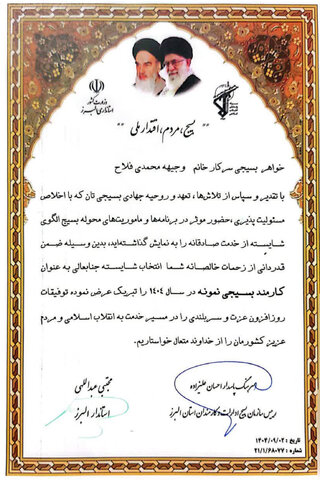 وزارت کشور
استانداری البرز
بسیج، مردم، اقتدار ملی
خواهر بسیجی سرکار خانم وجیهه محمدی فلاح
با تقدیر و سپاس از تلاش‌ها، تعهد و روحیه جهادی بسیجی تان که با اخلاص
مسئولیت پذیری، حضور موثر در برنامه‌ها و ماموریت‌های محوله بسیج الگوی
شایسته از خدمت صادقانه را به نمایش گذاشته‌اید، بدین وسیله ضمن
قدردانی از زحمات خالصانه شما انتخاب شایسته جنابعالی به عنوان
کارمند بسیجی نمونه در سال ۱۴۰۴ را تبریک عرض نموده توفیقات
روزافزون عزت و سربلندی را در مسیر خدمت به انقلاب اسلامی و مردم
عزیز کشورمان را از خداوند متعال خواستاریم.
سرهنگ پاسدار احسان علیزاده
رئیس سازمان بسیج ادارات و کارمندان استان البرز
مجتبی عبداللهی
استاندار البرز
تاریخ : ۱۴۰۴/۰۹/۰۲
شماره : ۲۱/۱/۶۸۰۷۷